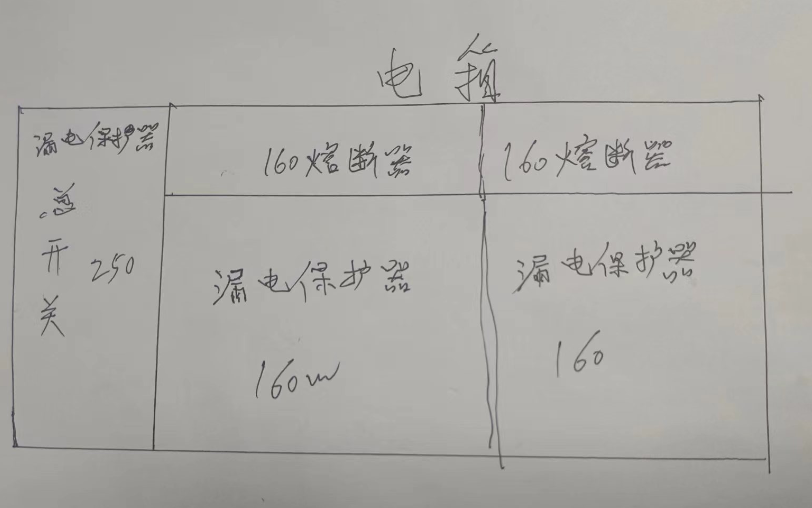 电箱
漏电保护器
总开关
250
160熔断器
160熔断器
漏电保护器
160w
漏电保护器
160